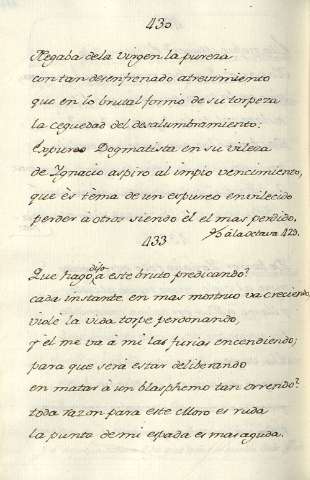 430
Negaba dela virgen la pureza
con tan desenfrenado atrevimiento
que en lo brutal formò de su torpeza
la ceguedad del desalumbramiento:
Expureo Dogmatista en su vileza
de Ignacio aspiro al impio vencimiento,
que ès tèma de un espureo envilecido
perder à otros siendo èl el mas perdido.
à la octava 429.
433
Que hago dijo à este bruto predicando?
cada instante en mas mostruo va creciendo,
violè la vida torpe perdonando,
y èl me và à mi las furias encendiendo;
para que serà estar deliberando
en matar à un blasphemo tan orrendo?
toda razon para este Moro es ruda
la punta de mi espada es mas aguda.